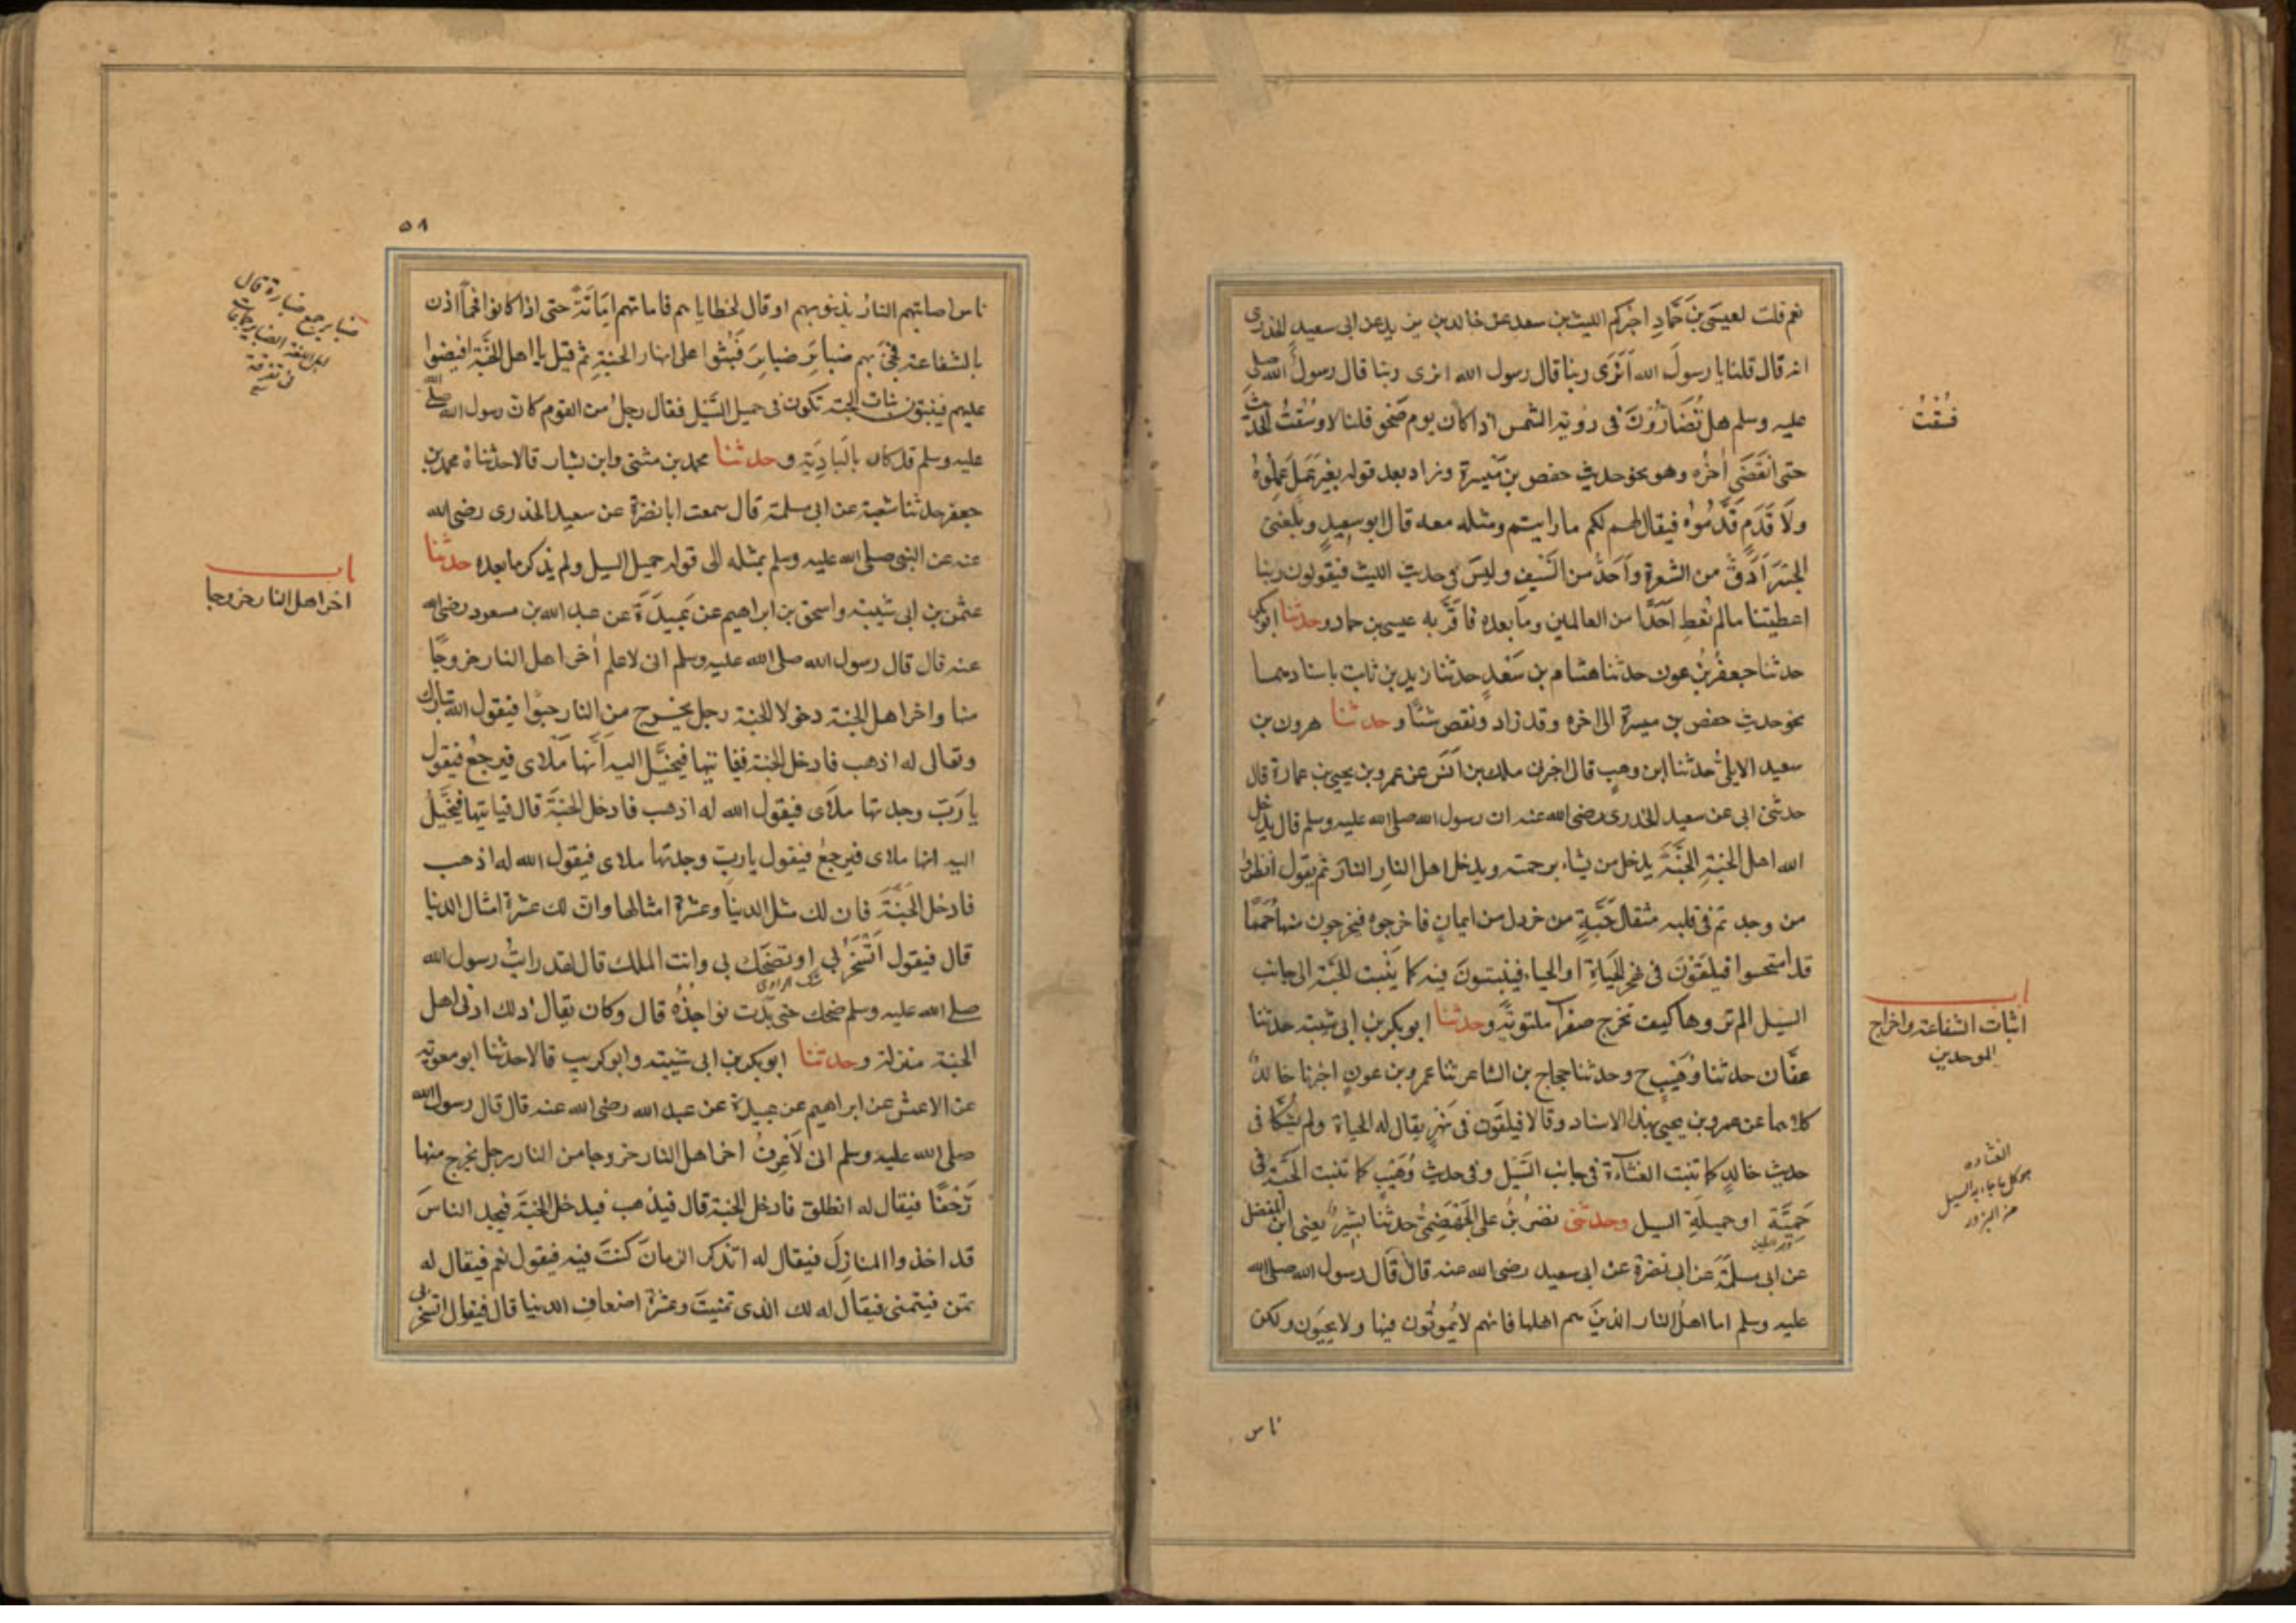 نعم قلت لعيسى بن حَمَّادِ اخبركم الليث بن سعد عن خالد بن يزيد عن ابى سعيدٍ الخدرى
انه قال قلنا يا رسولَ الله اَنَرَى ربنا قال رسول الله انرى ربنا قال رسولُ الله صلى
عليه وسلم هل تُضَارُّوْنَ فى روية الشمس اذا كان يوم صَحْوٍ قلنا لا وسُقتُ الحديث
حتى انقَضَى اٰخرُه وهو نحو حديث حفص بن مَيْسرة وزاد بعد قوله بغيرِ عَمَلٍ عَمِلُوْهُ
ولَا قَدَمٍ قَدَّمُوْهُ فيقال لهم لكم ما رايتم ومثله معه قال ابو سعيدٍ وبَلَغنى
الجسْرَ اَدَقُّ من الشعرة واَحَدُّ من السَّيفِ وليسَ فى حديث الليث فيقولون ربنا
اعطيتنا مالم تُعْطِ اَحَدًا من العالمين وما بعده فاقَرَّ به عيسى بن حماد وحدثنا ابو بكر
حدثنا جعفرُ بنُ عون حدثنا هشام بن سَعْدٍ حدثنا زيد بن ثابت باسنادهما
نحو حديث حفص بن ميسرة الى اخره وقد زاد ونقص شئًا وحدثنا هرون بن
سعيد الايلىُّ حدثنا ابن وهبٍ قال اخبرنى ملك بن اَنَسٍ عن عمرو بن يحيى بن عمارة قال
حدثنى ابى عن سعيد الخدرى رضى الله عنه ان رسول الله صلى الله عليه وسلم قال يدخل
الله اهل الجنةِ الجنَّةَ يدخل من يشاء برحمته ويدخل اهل النارِ النارَ ثم يقول انظروا
من وجدتم فى قلبه مثقال حَبَّةٍ من خردل من ايمانٍ فاخرجوه فيخرجون منها حُمَمًا
قد امتحسوا فيلقَوْنَ فى نهرِ الحَيَاةِ او الحياء فينبتونَ فيه كما يَنْبت الحبَّة الى جانب
السَّيل الم تروها كيف تخرج صفرآ ملتويَةً وحدثنا ابو بكر بن ابى شيبة حدثنا
عفَّان حدثنا وُهَيْبٍ ح وحدثنا حجاج بن الشاعر ثنا عمرو بن عونٍ اخبرنا خالدٌ
كلاهما عن عمرو بن يحيى بهذا الاسناد وقالا فيلقَوْن فى نَهْرٍ يقال له الحياة ولم يَشُكَّا فى
حديث خالدٍ كما تنبت الغثآءة فى جانب السَّيل وفى حديث وُهَيْبٍ كما تنبت الحَبَّة فى
حَمِئَةٍ او حميلَةِ السيل وحدثنى نصرُ بنُ على الجَهْضَمِىُّ حدثنا بِشْرٌ يعنى ابن المفضل
عن ابى مسلَمةَ عن ابى نضرة عن ابى سعيد رضى الله عنه قال قال رسول الله صلى الله
عليه وسلم اما اهلُ النار الذينَ هم اهلها فانهم لا يَمُوتُون فيها ولا يحيَون ولكن
ناس
فسُقْتُ
باب
اثبات الشفاعة واخراج
الموحدين
الغثاءه
هو كل ما جاء به السيل
من البزور
٥٨
ناس اصابتهم النارُ بذنوبهم او قال لخطاياهم فاماتهم اِمَاتَةً حتى اذا كانوا فحمًا اذن
بالشفاعة فجئَ بهم ضبائِرَ ضبائِرَ فَبُثُّوا على انهار الجنةِ ثم قيل يا اهل الجَنَّةِ افيضوا
عليهم فينبتون نبات الحبة تكون فى حميل السَّيْل فقال رجلٌ من القوم كان رسول الله صلى الله
عليه وسلم قد كان بالبَادِيَةِ وحدثنا محمد بن مثنى وابن بشار قالا حدثنا محمد بن
جعفر حدثنا شعبة عن ابى مسلمة قال سمعت ابا نضرة عن سعيد الخدرى رضى الله
عنه عن النبى صلى الله عليه وسلم بمثله الى قوله حميل السيل ولم يذكر ما بعده حدثنا
عثمن بن ابى شيبة واسحق بن ابراهيم عن عَبيدَةَ عن عبد الله بن مسعود رضى الله
عنه قال قال رسول الله صلى الله عليه وسلم انى لاعلم اٰخر اهل النار خروجًا
منها واخر اهل الجنة دخولا الجنة رجل يخرج من النار حبْوًا فيقول الله تبارك
وتعالى له اذهب فادخل الجنة فياتيها فيخَيَّل اليه اَنَّها مَلْاى فيرجعُ فيقول
يا رَبِّ وجدتها ملاَى فيقول الله له اذهب فادخل الجنَّةَ قال فياتيها فيخَيَّلُ
اليه انها ملاى فيرجعُ فيقول يا ربِّ وجدتها ملاى فيقول الله له اذهب
فادخل الجَنَّةَ فان لك مثل الدنيا وعشرة امثالها او انّ لك عشرة امثال الدنيا
قال فيقول اَتَسْخَرُ بى او تضحَك بى وانت الملك قال لقد رايتُ رسول الله
شك الراوى
صلى الله عليه وسلم ضحك حتى بَدَت نواجذُه قال وكان يقال ذلك ادنى اهل
الجنة منزلة وحدثنا ابو بكر بن ابى شيبة وابو كريب قالا حدثنا ابو معوية
عن الاعمش عن ابراهيم عن عبيدة عن عبد الله رضى الله عنه قال قال رسول الله
صلى الله عليه وسلم انى لَاَعْرِفُ اخر اهل النار خروجا من النار رجل يخرج منها
زَحْفًا فيقال له انطلق فادخل الجنة قال فيذهب فيدخل الجنَّةَ فيجد الناسَ
قد اخذوا المنازِلَ فيقال له اتذكر الزمانَ كنتَ فيه فيقول نعم فيقال له
تمن فيتمنى فيقال له لك الذى تمنيتَ وعشرة اضعاف الدنيا قال فيقول اتسخر بى
ضباير جمع ضبارة قال
اهل اللغة الضباير جماعات
فى تفرقة
باب
اخر اهل النار خروجا